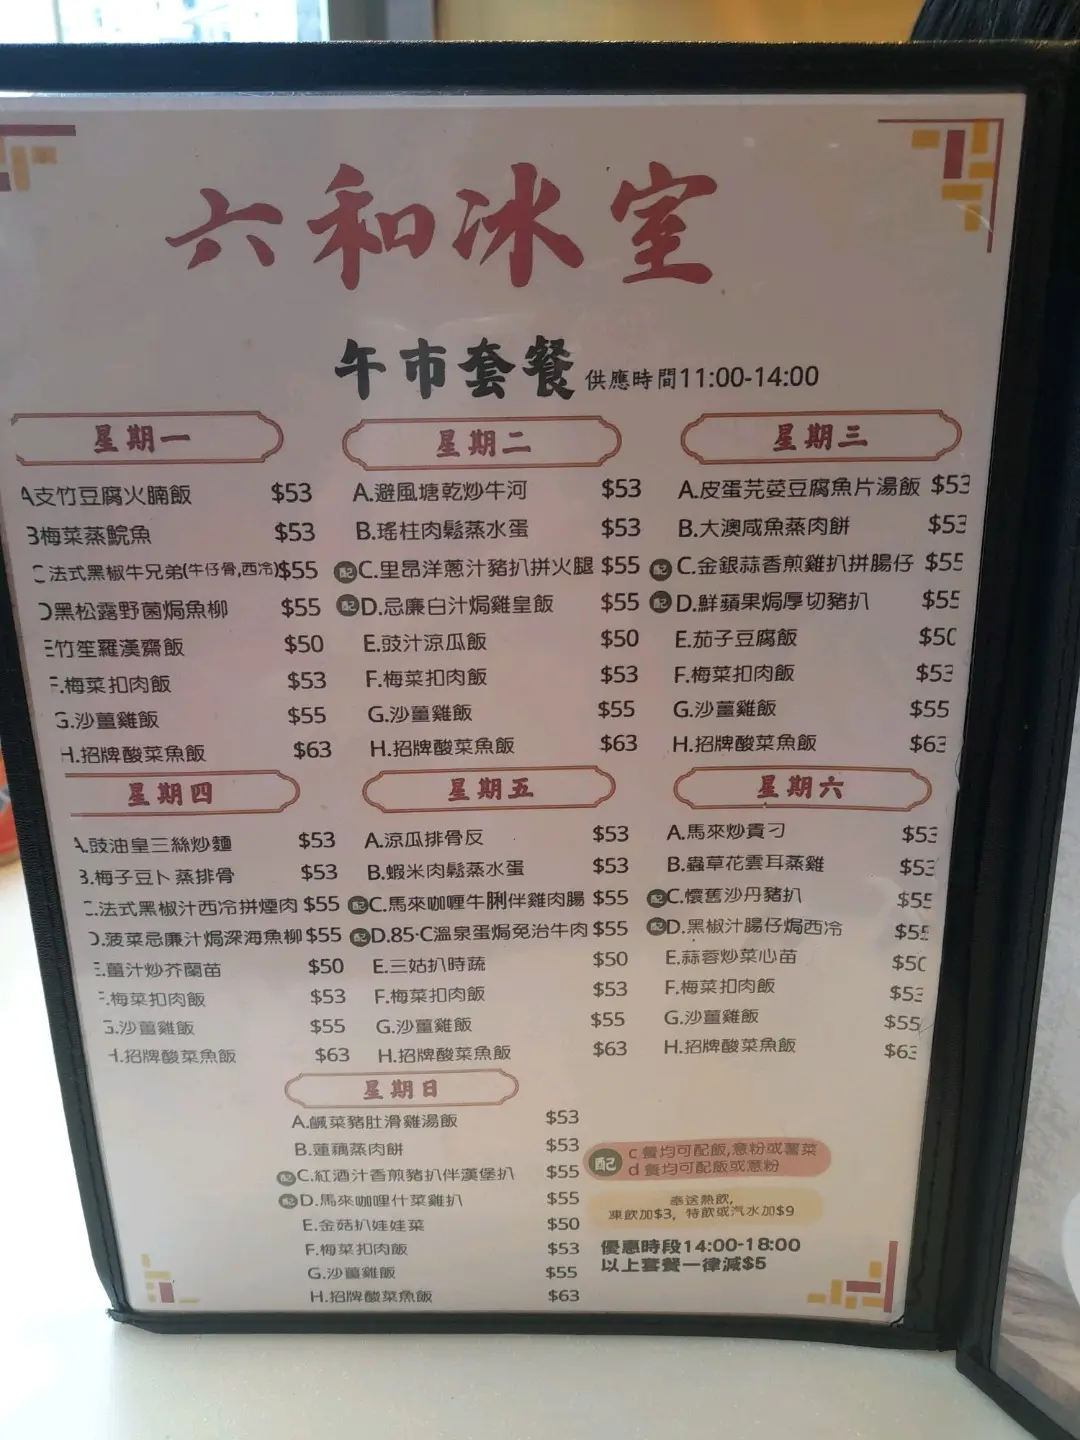 六和冰室
午市套餐 供應時間11:00-14:00
星期一
A支竹豆腐火腩飯 $53
B梅菜蒸鯇魚 $53
C法式黑椒牛兄弟(牛仔骨,西冷)$55
D黑松露野菌焗魚柳 $55
E竹笙羅漢齋飯 $50
F.梅菜扣肉飯 $53
G.沙薑雞飯 $55
H.招牌酸菜魚飯 $63
星期二
A.避風塘乾炒牛河 $53
B.瑤柱肉鬆蒸水蛋 $53
配C.里昂洋蔥汁豬扒拼火腿 $55
配D.忌廉白汁焗雞皇飯 $55
E.豉汁涼瓜飯 $50
F.梅菜扣肉飯 $53
G.沙薑雞飯 $55
H.招牌酸菜魚飯 $63
星期三
A.皮蛋芫荽豆腐魚片湯飯 $53
B.大澳咸魚蒸肉餅 $53
配C.金銀蒜香煎雞扒拼腸仔 $55
配D.鮮蘋果焗厚切豬扒 $55
E.茄子豆腐飯 $50
F.梅菜扣肉飯 $53
G.沙薑雞飯 $55
H.招牌酸菜魚飯 $63
星期四
A.豉油皇三絲炒麵 $53
B.梅子豆卜蒸排骨 $53
C.法式黑椒汁西冷拼煙肉 $55
D.菠菜忌廉汁焗深海魚柳 $55
E.薑汁炒芥蘭苗 $50
F.梅菜扣肉飯 $53
G.沙薑雞飯 $55
H.招牌酸菜魚飯 $63
星期五
A.涼瓜排骨反 $53
B.蝦米肉鬆蒸水蛋 $53
配C.馬來咖喱牛脷伴雞肉腸 $55
配D.85·C溫泉蛋焗免治牛肉 $55
E.三菇扒時蔬 $50
F.梅菜扣肉飯 $53
G.沙薑雞飯 $55
H.招牌酸菜魚飯 $63
星期六
A.馬來炒貴刁 $53
B.蟲草花雲耳蒸雞 $53
配C.懷舊沙丹豬扒 $55
配D.黑椒汁腸仔焗西冷 $55
E.蒜蓉炒菜心苗 $50
F.梅菜扣肉飯 $53
G.沙薑雞飯 $55
H.招牌酸菜魚飯 $63
星期日
A.鹹菜豬肚滑雞湯飯 $53
B.蓮藕蒸肉餅 $53
配C.紅酒汁香煎豬扒伴漢堡扒 $55
配D.馬來咖哩什菜雞扒 $55
E.金菇扒娃娃菜 $50
F.梅菜扣肉飯 $53
G.沙薑雞飯 $55
H.招牌酸菜魚飯 $63
配 c 餐均可配飯,意粉或薯菜
d 餐均可配飯或意粉
奉送熱飲,
凍飲加$3, 特飲或汽水加$9
優惠時段14:00-18:00
以上套餐一律減$5